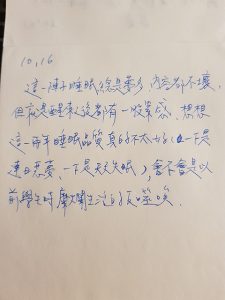 10,16
這一陣子睡眠總是夢多,內容都不壞,
但夜是醒來後都有一股累感,想想
這一兩年睡眠品質真的不太好(一下是
連日惡夢、一下是天天失眠),會不會是以
前學生時糜爛生活的反噬唉.